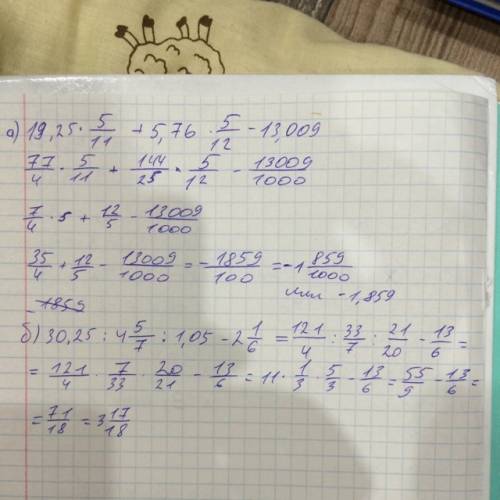 а) 19,25 · 5/11 + 5,76 · 5/12 - 13,009
77/4 · 5/11 + 144/25 · 5/12 - 13009/1000
7/4 · 5 + 12/5 - 13009/1000
35/4 + 12/5 - 13009/1000 = - 1859/100 = -1 859/1000
или -1,859
-1859
б) 30,25 : 4 5/7 : 1,05 - 2 1/6 = 121/4 : 33/7 : 21/20 - 13/6 =
= 121/4 · 7/33 · 20/21 - 13/6 = 11 · 1/3 · 5/3 - 13/6 = 55/9 - 13/6 =
= 71/18 = 3 17/18